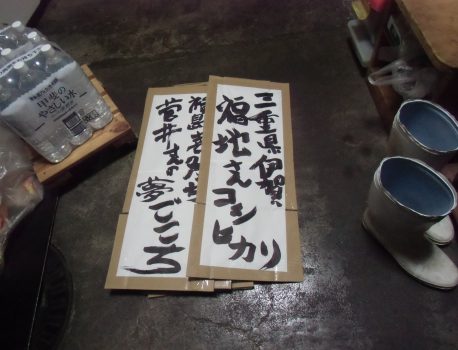 三重県伊賀
福地さんコシヒカリ
福島喜多方
菅井さんの夢ごこち
甲斐の
やさしい水